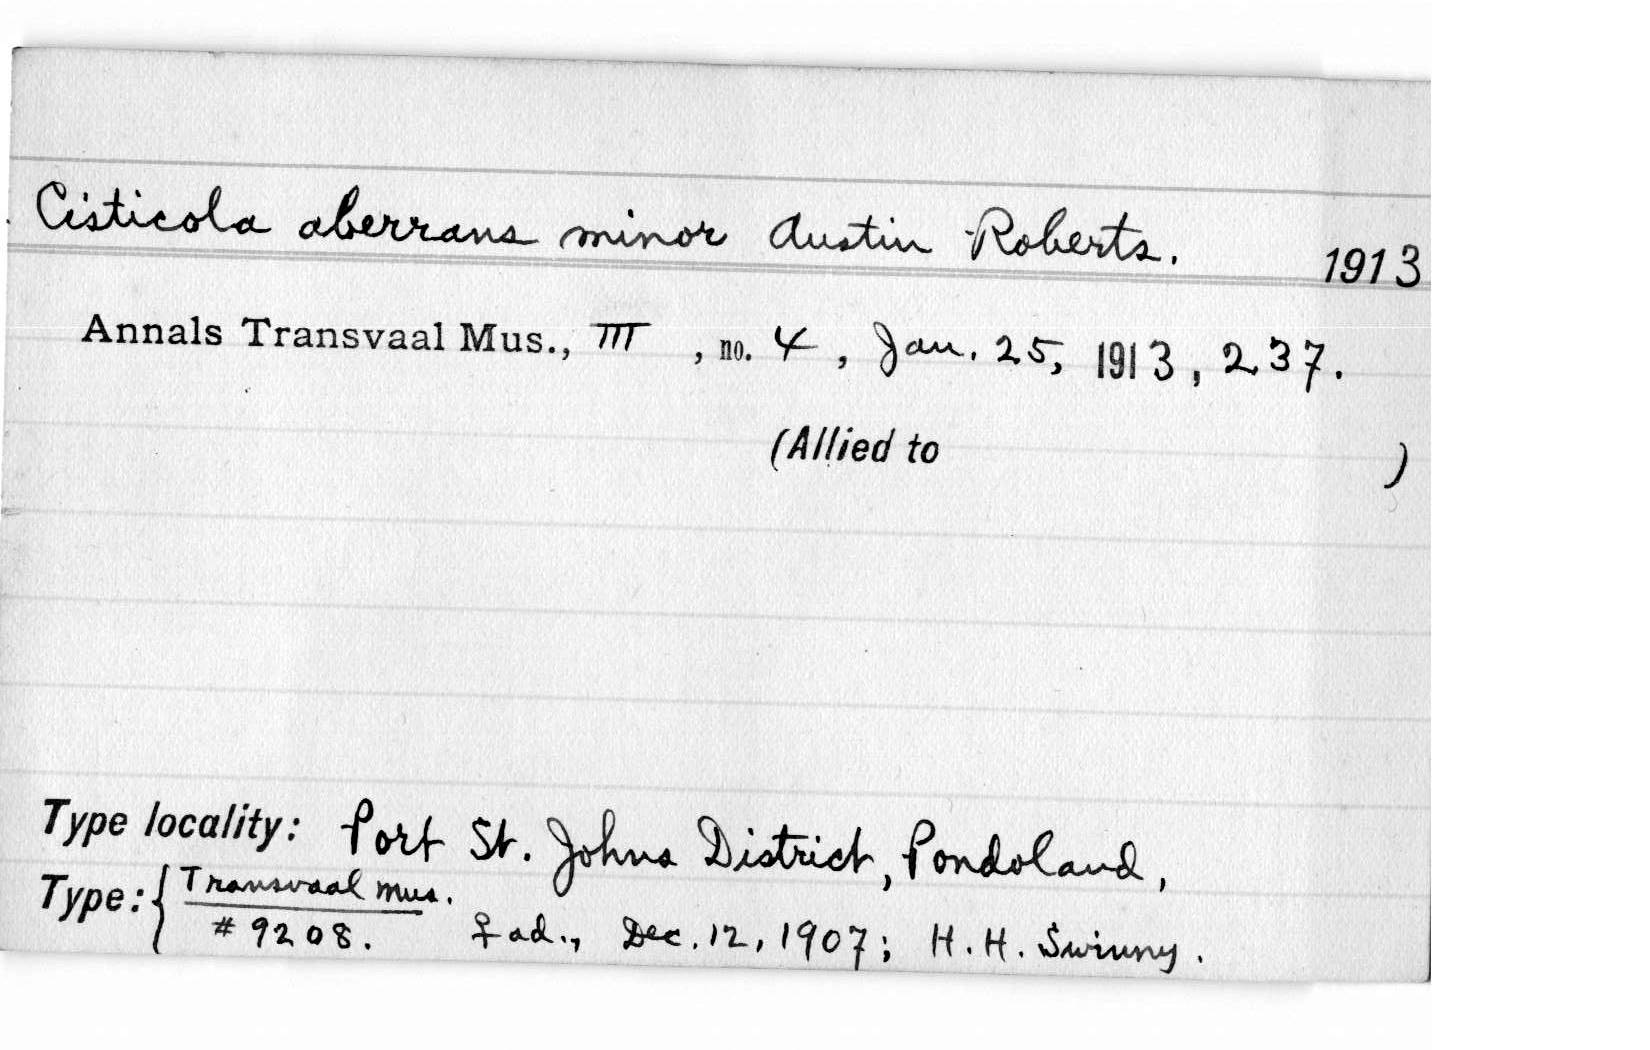 Cisticola aberrans minor Austin Roberts. 1913
Annals Transvaal Mus., III, no. 4, Jan. 25, 1913, 237.
(Allied to )
Type locality: Port St. Johns District, Pondoland,
Type: { Transvaal Mus.
# 9208. ♀ ad., Dec. 12, 1907; H. H. Swinny.